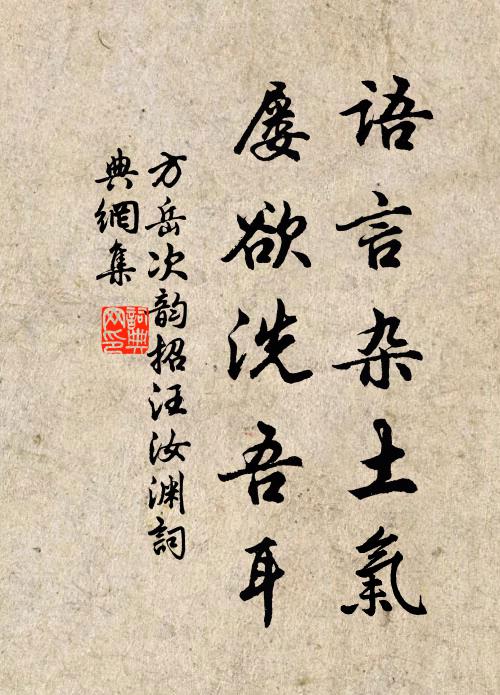 语言杂土氣
屡欲洗吾耳
方岳次韵招汪汝渊詞
典網集
詞典
网印